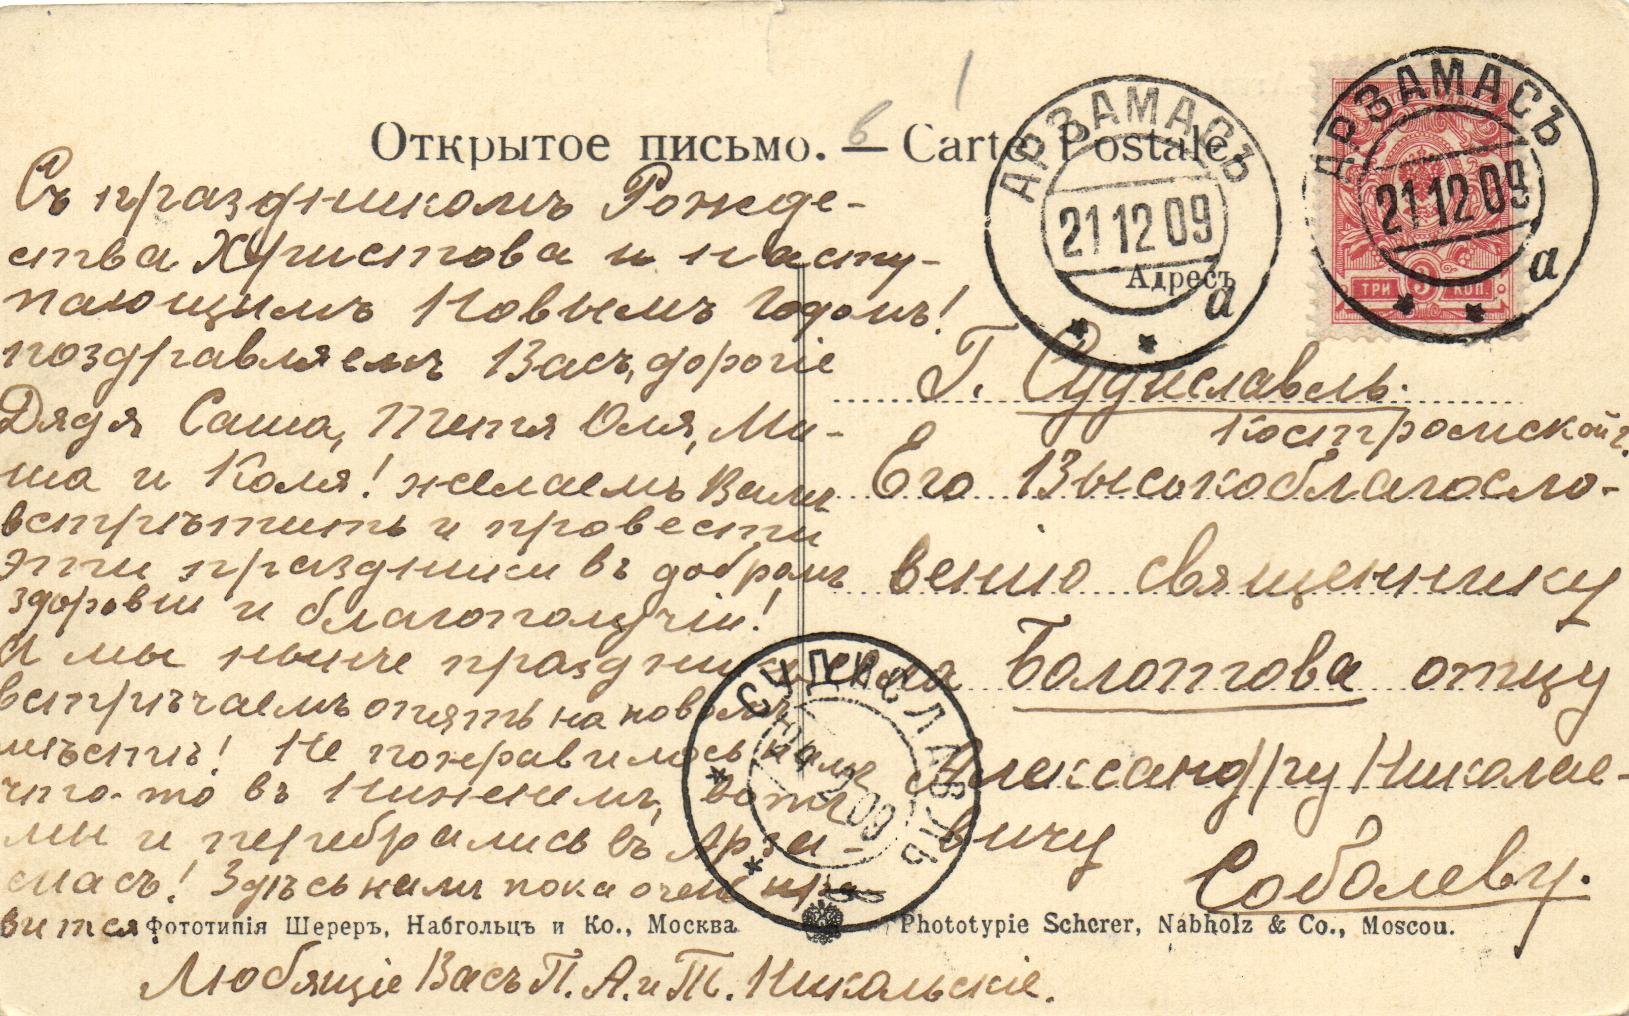 Открытое письмо. — Carte Postale.
АРЗАМАСЪ
21 12 09
а
АРЗАМАСЪ
21 12 09
а
ТРИ 3 КОП.
Адресъ
Съ праздникомъ Рожде-
ства Христова и насту-
пающимъ Новымъ Годомъ!
поздравляемъ Васъ, дорогіе
Дядя Саша, Тетя Оля, Ми-
ша и Коля! желаемъ Вамъ
встрѣтить и провести
эти праздники въ добромъ
здоровіи и благополучіи!
А мы нынче праздники
встрѣчаемъ опять на новомъ
мѣстѣ! Не понравилось намъ
что-то въ Нижнемъ, вотъ
мы и перебрались въ Арза-
масъ! Здѣсь намъ пока очень нра-
вится
Любящіе Васъ П. А. и Т. Никольскіе.
Г. Судиславль.
Костромской г.
Его Высокоблагосло-
венію священнику
села Болотова отцу
Александру Николае-
вичу
Соболеву.
СУДИСЛАВЛЬ
09
Фототипія Шереръ, Набгольцъ и Ко., Москва
Phototypie Scherer, Nabholz & Co., Moscou.